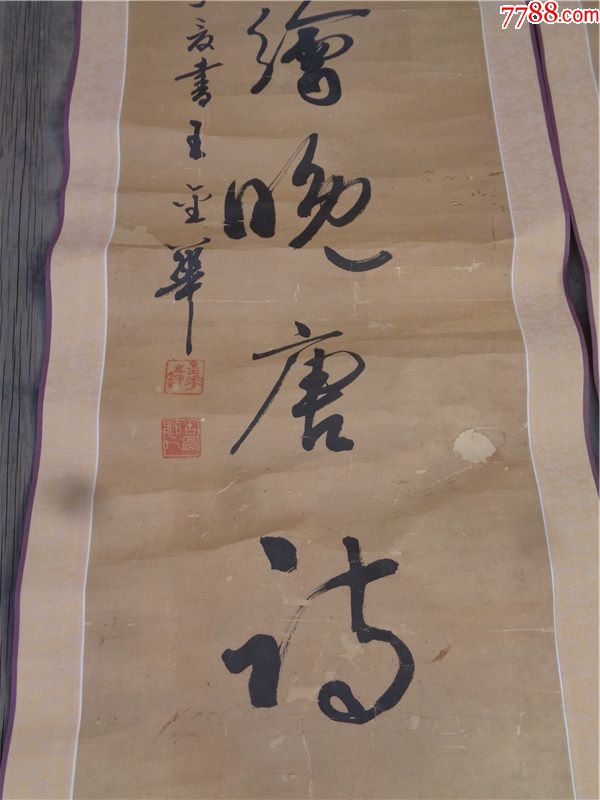 7788.com
繪晚唐詩
書王金華